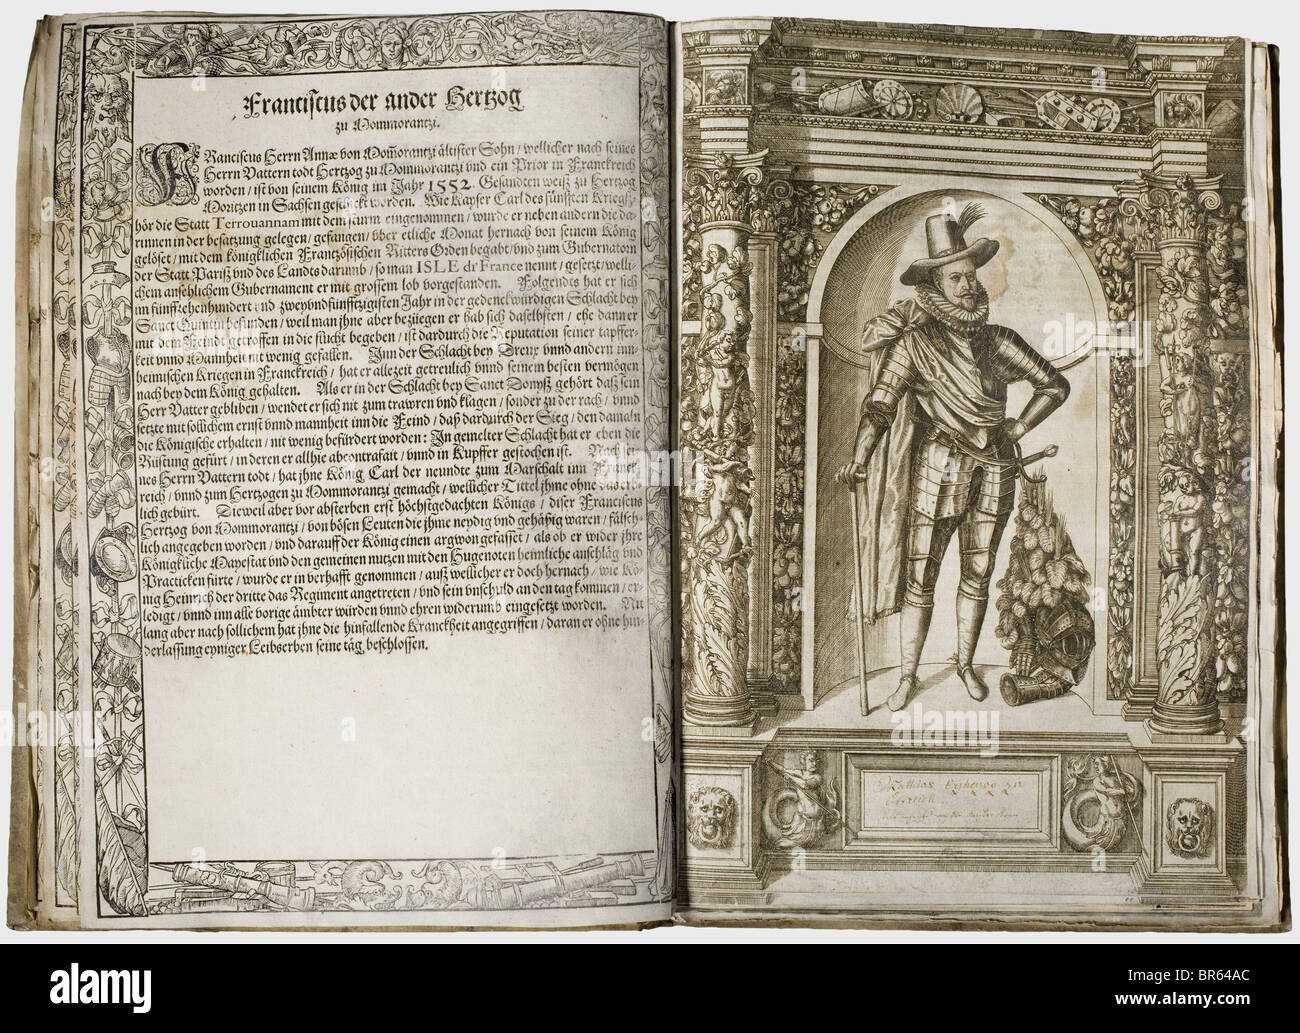 Franciscus der ander Hertzog
zu Mommorantzi.
FRanciscus Herrn Annæ von Mom̃orantzi ältister Sohn / wellicher nach seines
Herrn Vattern todt Hertzog zu Mommorantzi vnd ein Prior in Franckreich
worden / ist von seinem König im Jahr 1552. Gesandten weiß zu Hertzog
Moritzen in Sachsen geschickt worden. Wie Kayser Carl des fünfften Kriegß-
hör die Statt Terrouannam mit dem sturm eingenommen / wurde er neben andern die da-
rinnen in der besatzung gelegen / gefangen / vber etliche Monat hernach von seinem König
gelöset / mit dem königklichen Frantzösischen Ritters Orden begabt / vnd zum Gubernatorn
der Statt Pariß vnd des Landts darumb / so man ISLE dr France nennt / gesetzt / welli-
chem ansehlichem Gubernament er mit grossem lob vorgestanden. Folgendts hat er sich
im fünffzehenhundert vnd zweyvndfünfftzigisten Jahr in der gedenckwürdigen Schlacht bey
Sanct Quintin befunden / weil man jhne aber beziiegen er hab sich daselbsten / ehe dann er
mit dem Feindt getroffen in die flucht begeben / ist dardurch die Reputation seiner tapffer-
keit vnnd Mannheit nit wenig gefallen. Inn der Schlacht bey Dreux vnnd andern inn-
heimischen Kriegen in Franckreich / hat er allezeit getreulich vnnd seinem besten vermögen
nach bey dem König gehalten. Als er in der Schlacht bey Sanct Donyß gehört daß sein
Herr Vatter gebliben / wendet er sich nit zum trawren vnd klagen / sonder zu der rach / vnnd
setzte mit sollichem ernst vnnd mannheit inn die Feind / daß dardurch der Sieg / den damaln
die Königische erhalten / nit wenig befürdert worden: In gemelter Schlacht hat er eben die
Rüstung gefürt / in deren er allhie abcontrafait / vnnd in Kupffer gestochen ist. Nach sei-
nes Herrn Vattern todt / hat jhne König Carl der neundte zum Marschalt inn Franck-
reich / vnnd zum Hertzogen zu Mommorantzi gemacht / wellicher Tittel jhme ohne das erb-
lich gebürt. Dieweil aber vor absterben erst höchstgedachten Königs / diser Franciscus
Hertzog von Mommorantzi / von bösen Leuten die jhme neydig vnd gehässig waren / fälsch-
lich angegeben worden / vnd darauff der König einen argwon gefasset / als ob er wider jhre
Königkliche Mayestat vnd den gemeinen nutzen mit den Hugenoten heimliche anschläg vnd
Practicken fürte / wurde er in verhafft genommen / auß wellicher er doch hernach / wie Kö-
nig Heinrich der dritte das Regiment angetretten / vnd sein vnschuld an den tag kommen / er-
ledigt / vnnd inn alle vorige ämbter würden vnnd ehren widerumb eingesetzt worden. Nit
lang aber nach sollichem hat jhne die hinfallende Kranckheit angegriffen / daran er ohne hin-
derlassung eyniger Leibserben seine täg beschlossen.
Matthias
alamy
Image ID: BR64AC
www.alamy.com